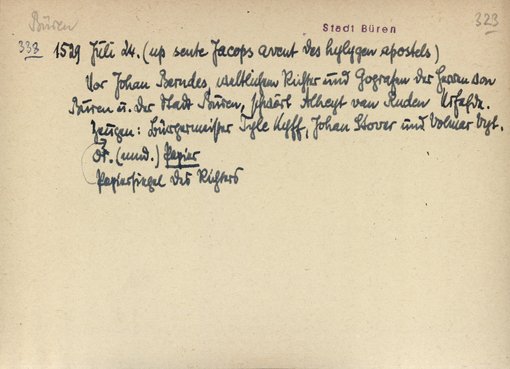 Büren
Stadt Büren
323
333 1529 Juli 24. (up sente Jacops avent des hylygen apostels)
Vor Johan Berndes, weltlichem Richter und Gografen der Herren von
Büren u. der Stadt Büren, schwört Alheyt van Ruden Urfehde.
Zeugen: Bürgermeister Tyle Kyff, Johan Stover und Volmer Vogt.
Or. (mnd.) Papier
Papiersiegel des Richters